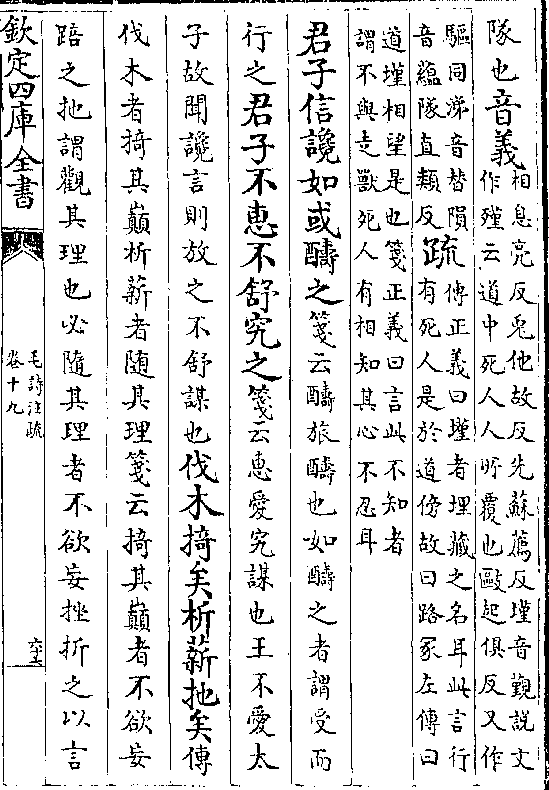 隊也音義
相息亮反兎他故反先蘇薦反墐音覲說文
作殣云道中死人人所覆也敺起俱反又作
驅同涕音替隕
音蘊隊直類反
疏
傳正義曰墐者埋藏之名耳此言行
有死人是於道傍故曰路冢左傳曰
道墐相望是也箋正義曰言此不知者
謂不與走獸死人有相知其心不忍耳
君子信讒如或醻之箋云醻旅醻也如醻之者謂受而
行之君子不恵不舒究之箋云恵愛究謀也王不愛太
子故聞讒言則放之不舒謀也伐木掎矣析薪扡矣傳
伐木者掎其巔析薪者隨其理箋云掎其巔者不欲妄
踣之扡謂觀其理也必隨其理者不欲妄挫折之以言
欽定四庫全書
毛詩注疏
卷十九